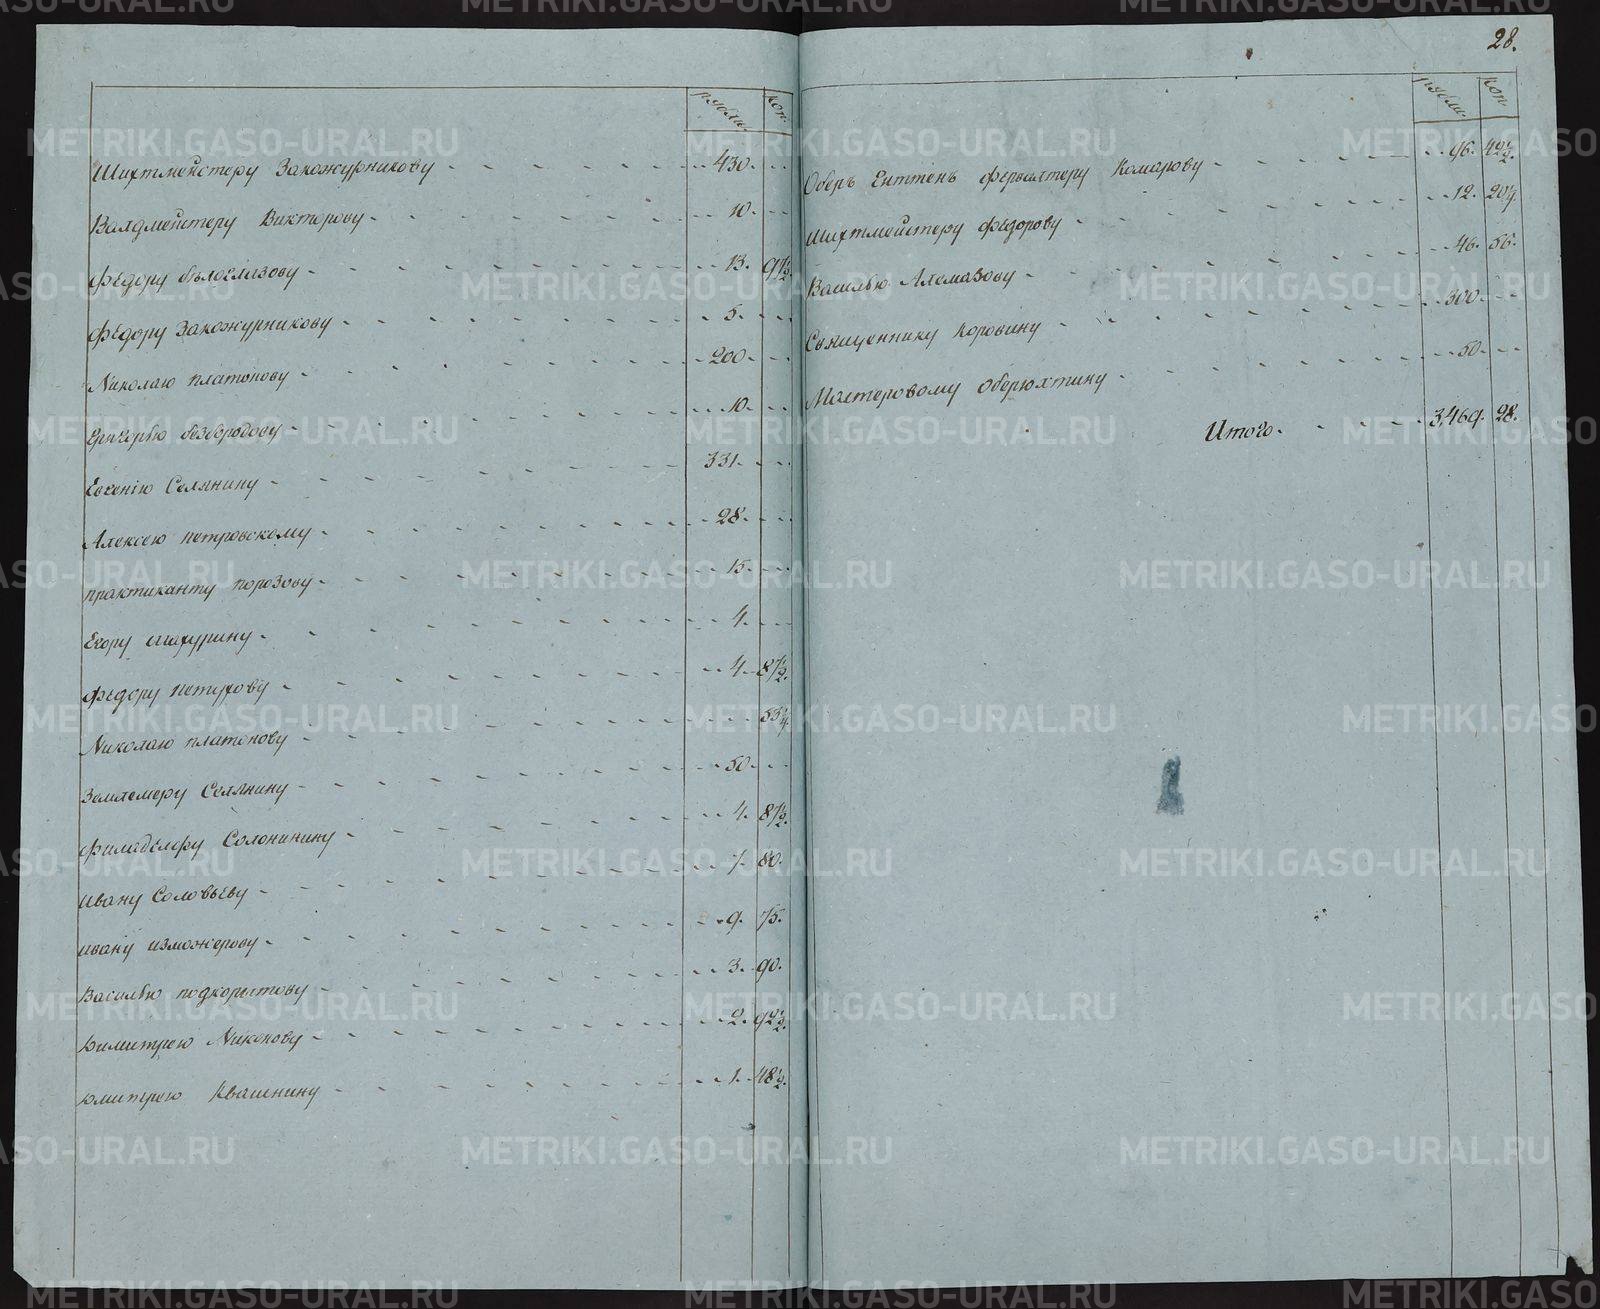 рубли. коп.
Шихтмейстеру Закожурникову 430.
Валдмейстеру Викторову 10.
Федору Белоглазову 13. 97½.
Федору Закожурникову 5.
Николаю Платонову 200.
Григорью Безбородову 10.
Евгенію Селянину 331.
Алексею Петровскому 28.
практиканту Порозову 15.
Егору 4.
Федору Петухову 4. 87½.
Николаю Платонову 53¼.
Землемеру Селянину 50.
Филадельфу Солонинину 4. 87½.
Ивану Соловьеву 7. 80.
Ивану Изможерову 9. 75.
Василью Подкорытову 3. 90.
Димитрею Никонову 2. 92½.
Дмитрею Квашнину 1. 48½.
28.
рубли. коп.
Оберъ Гиттенъ Фервалтеру Комарову 96. 42½.
Шихтмейстеру Федорову 12. 20¼.
Василью Алемазову 46. 56.
Священнику Коровину 300.
Мастеровому Оберюхтину 50.
Итого 3,469. 28.
METRIKI.GASO-URAL.RU